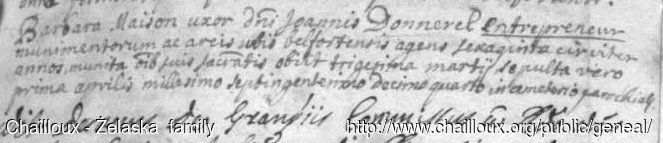 Barbara Maison uxor dni Joannis Donnerel entrepreneur
munimentorum ac arcis urbis belfortensis agens sexaginta circiter
annos, munita oib suis sacratis obiit trigesima martij sepulta vero
prima aprilis millesimo septingentesimo decimo quarto in cœmeterio parrchiali
de Grandiis
Chailloux - Żelaska family
http://www.chailloux.org/public/geneal/